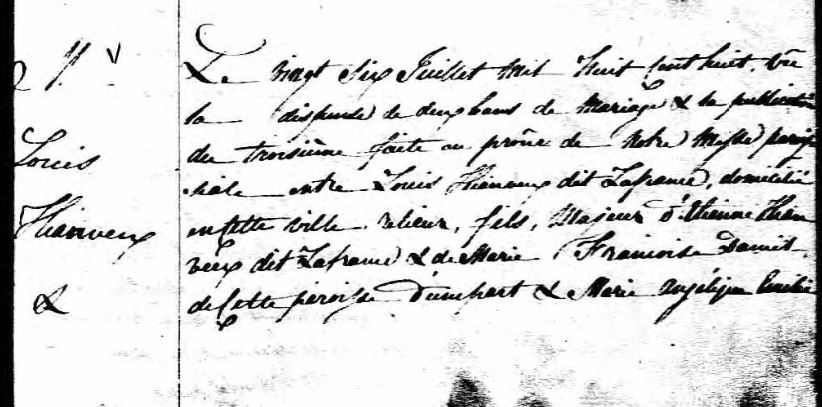 M. v
Louis
Hianveux
&
Le vingt Six Juillet mil huit cent huit. Vûe
la dispense de deux bans de Mariage & la publication
du troisième faite au prône de Notre Messe parois
siale entre Louis Hianveux dit Lafrance, domicilié
en cette ville relieur, fils, Majeur d'Etienne Hian
veux dit Lafrance & de Marie Francoise
de cette paroisse d'unepart & Marie Angélique Emilie